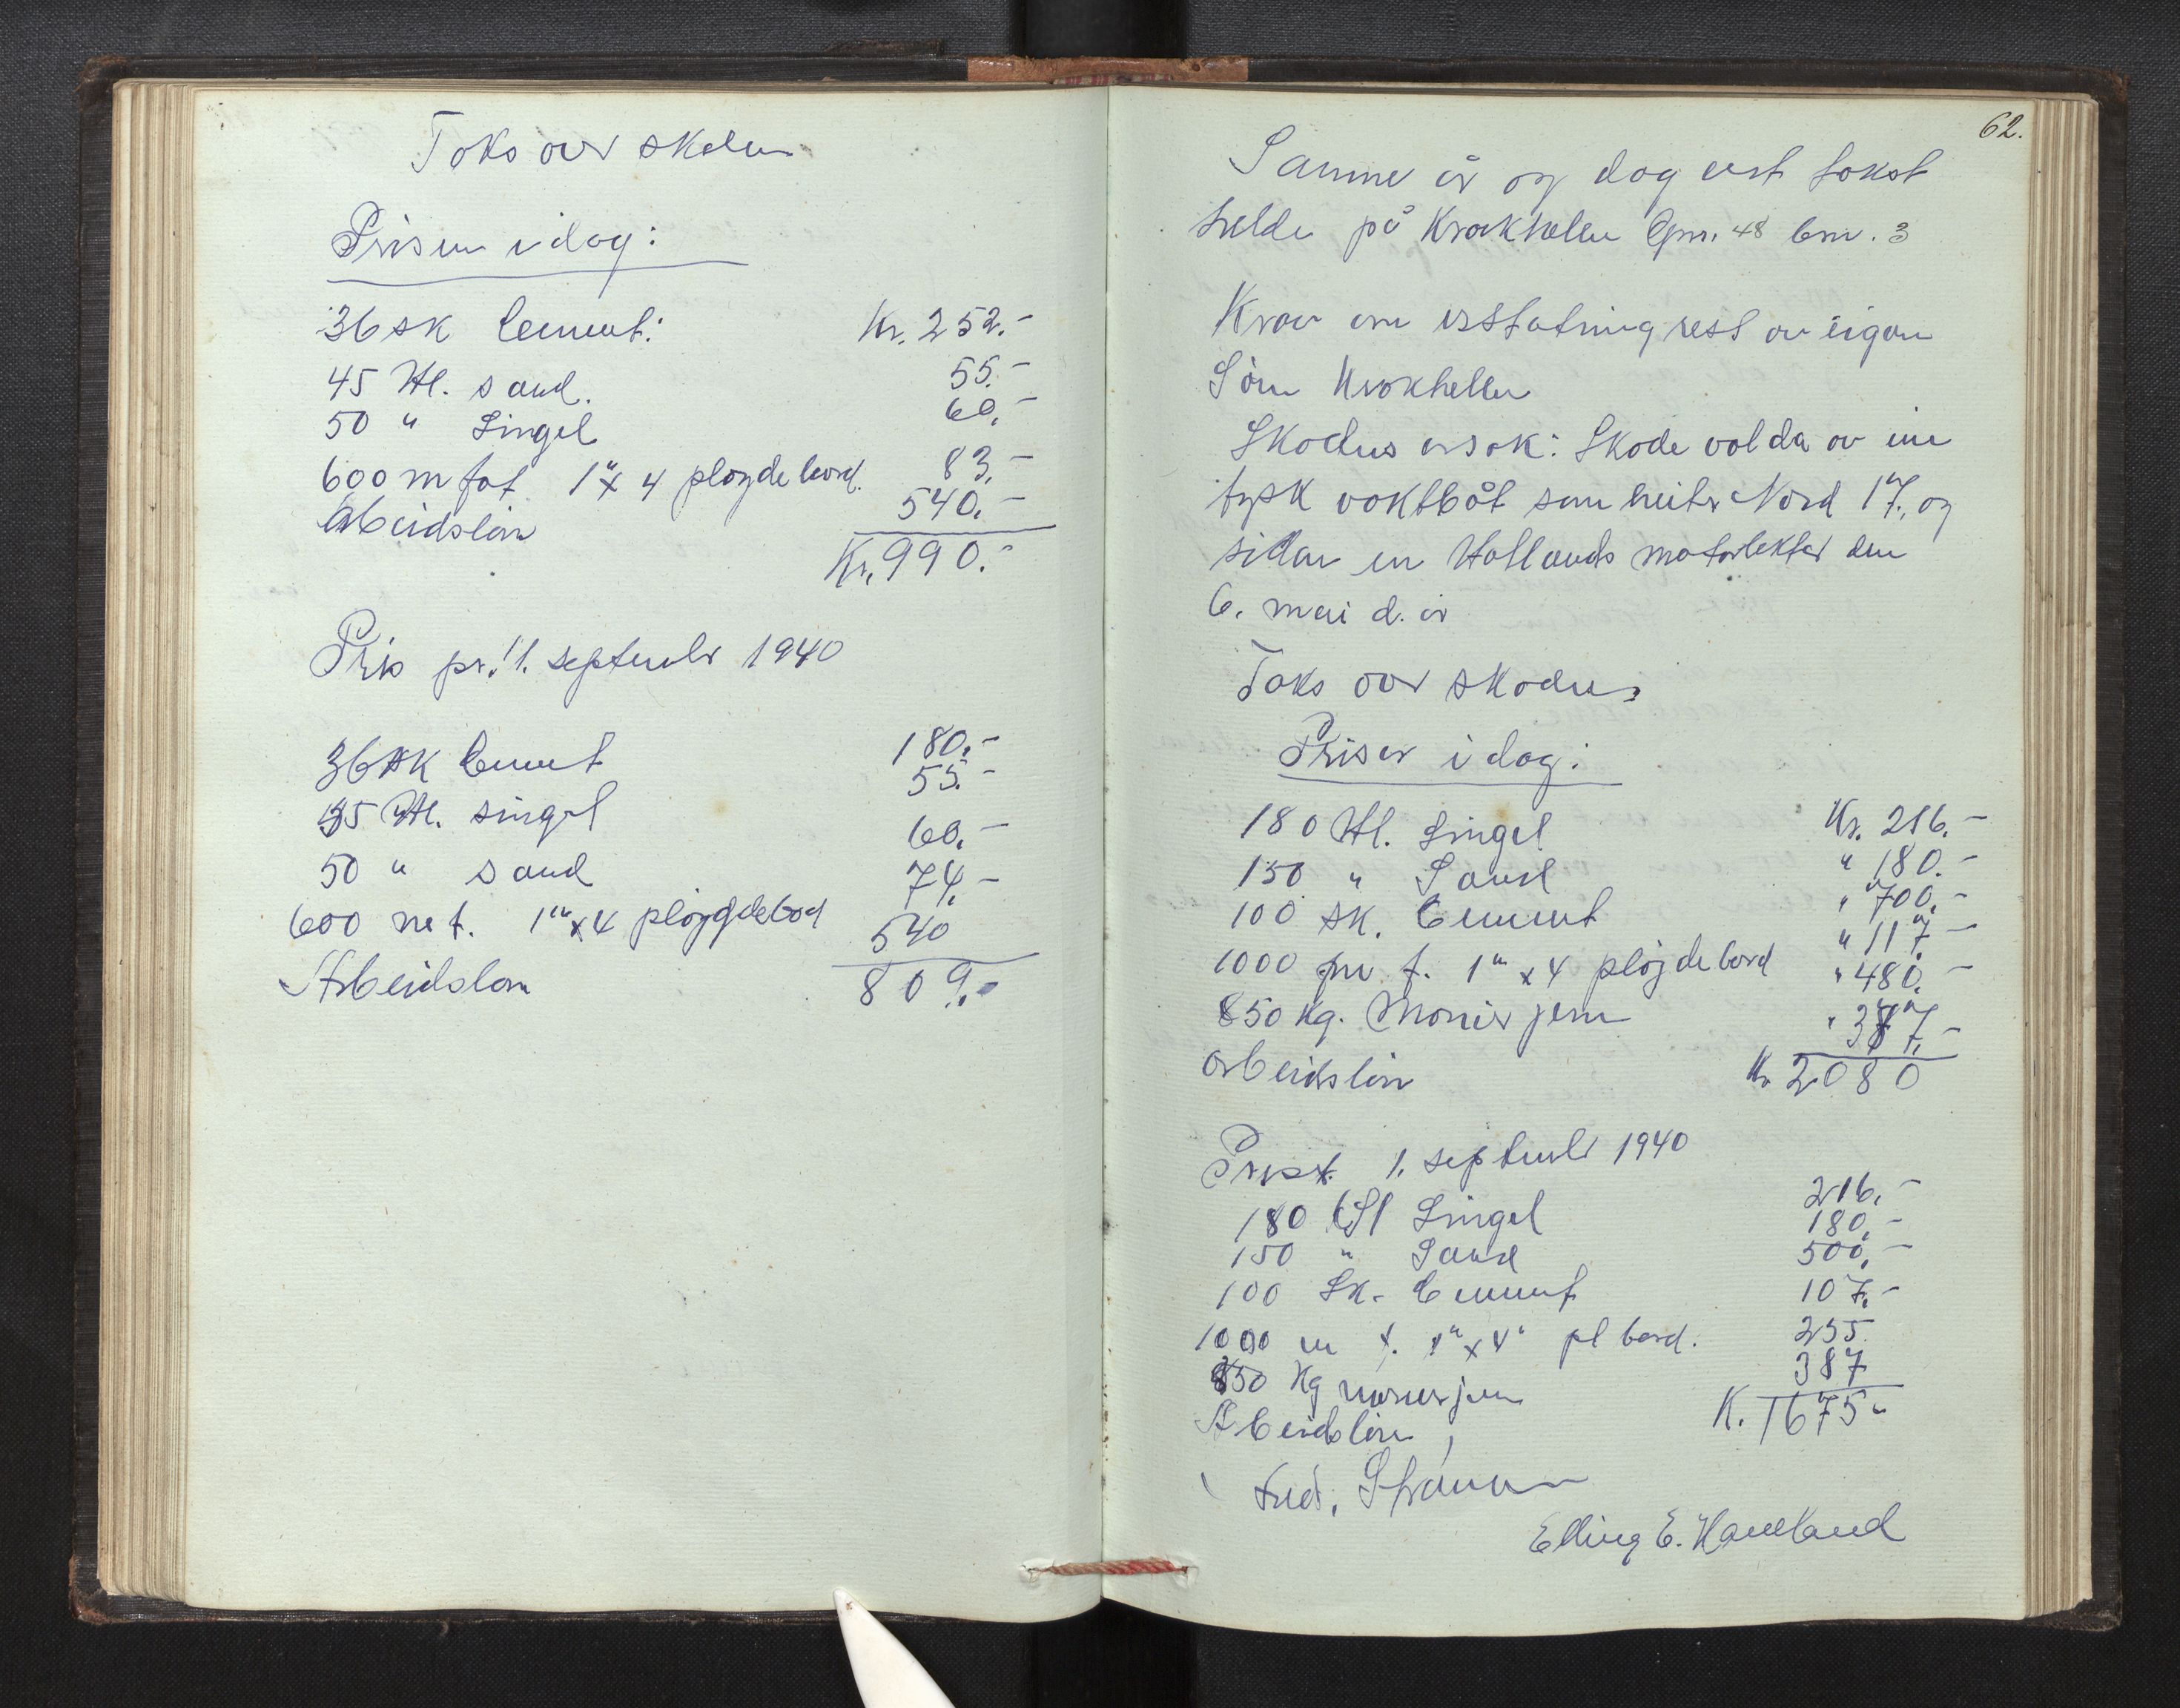 Taks over skaden
Prisen idag:
36 sk Cement: Kr. 252.-
45 Hl. sand. 55.-
50 " Singel 60.-
600 m fot 1" x 4 pløyde bord. 83.-
Arbeidsløn 540.-
Kr. 990.-
Pris pr. 1. september 1940
36 sk Cement 180.-
45 Hl. singel 55.-
50 " sand 60.-
600 m f. 1" x 4 pløygdebord 74.-
Arbeidsløn 540
809.-
62.
Samme år og dag vart takst
helde på Krakhellen Gnr. 48 bnr. 3
Krav om erstatning reist av eigar
Sørn Krakhellen
Skadens orsak: Skade volda av ein
tysk vaktbåt som heiter Nord 17, og
sidan en Hollands motorlekter den
6. mai d. år
Taks over skaden
Priser idag:
180 Hl. Singel Kr. 216.-
150 " Sand " 180.-
100 sk. Cement " 700.-
1000 m f. 1" x 4 pløyde bord " 117.-
850 Kg. Monier jern " 480.-
Arbeidsløn " 387.-
Kr 2080
Pris pr. 1. september 1940
180 Hl Singel 216.-
150 " Sand 180.-
100 Sk. Cement 500.-
1000 m f. 1" x 4" pl bord. 107.-
850 Kg monierjern 255.
Arbeidsløn 387
K. 1675.-
Fred. Straume
Elling E. Haveland